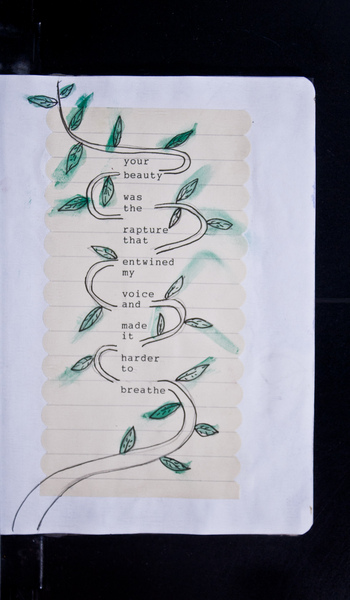 your
beauty
was
the
rapture
that
entwined
my
voice
and
made
it
harder
to
breathe